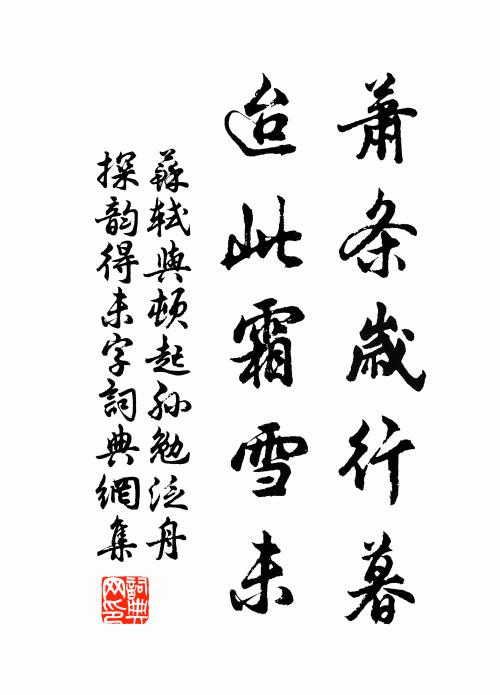 蕭条歲行暮
迨此霜雪未
蘇軾與頓起孫勉泛舟
探韵得未字詞典網集
詞典网印